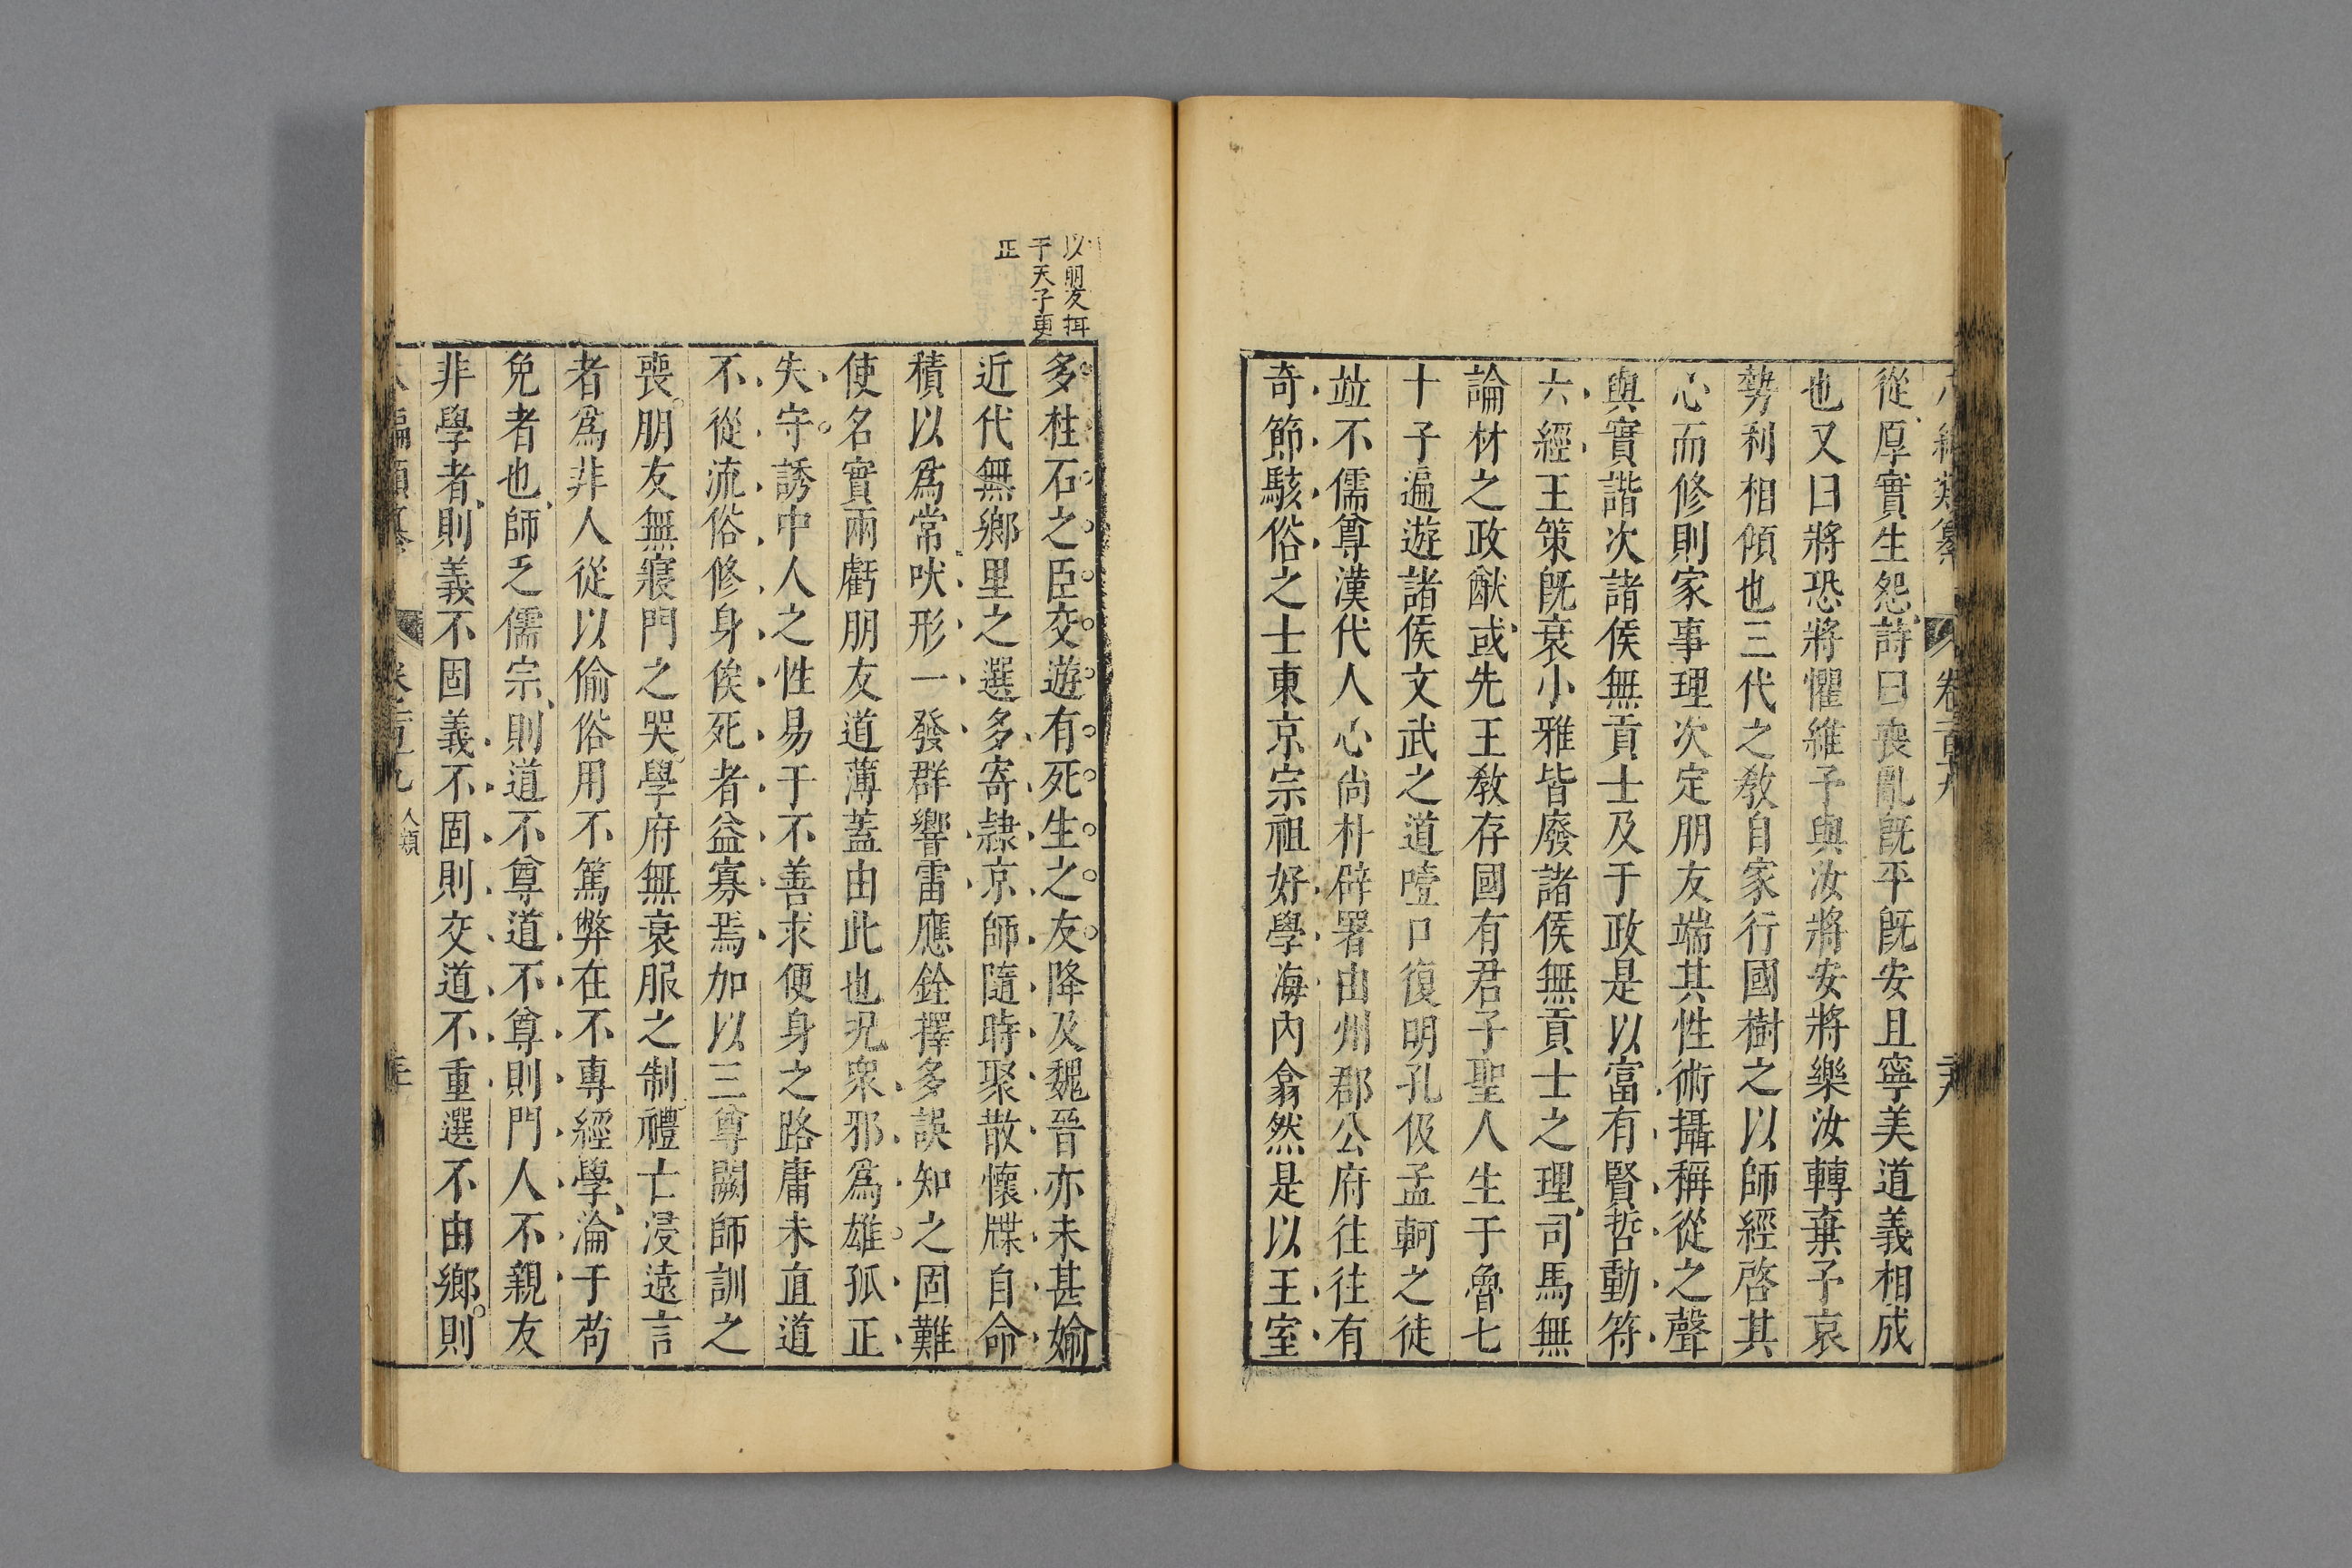 編類纂
卷百九
從厚實生怨詩曰喪亂旣平旣安且寧美道義相成
也又曰將恐將懼維予與汝將安將樂汝轉棄予哀
勢利相傾也三代之教自家行國樹之以師經啓其
心而修則家事理次定朋友端其性術攝稱從之聲
與實諧次諸侯無貢士及于政是以富有賢哲動符
六經王策旣衰小雅皆廢諸侯無貢士之理司馬無
論材之政猷或先王教存國有君子聖人生于魯七
十子遍遊諸侯文武之道噎口復明孔伋孟軻之徒
竝不儒尊漢代人心尚朴辟署由州郡公府往往有
奇節駭俗之士東京宗祖好學海內翕然是以王室
以朋友揖
于天子更
正
多柱石之臣交遊有死生之友降及魏晉亦未甚媮
近代無鄉里之選多寄隷京師隨時聚散懷牒自命
積以爲常吠形一發群響雷應銓擇多誤知之固難
使名實兩虧朋友道薄蓋由此也況衆邪爲雄孤正
失守誘中人之性易于不善求便身之路庸未直道
不從流俗修身俟死者益寡焉加以三尊闕師訓之
喪朋友無寢門之哭學府無衰服之制禮亡浸遠言
者爲非人從以偷俗用不篤弊在不專經學淪于苟
免者也師乏儒宗則道不尊道不尊則門人不親友
非學者則義不固義不固則交道不重選不由鄉則
編類纂
人類